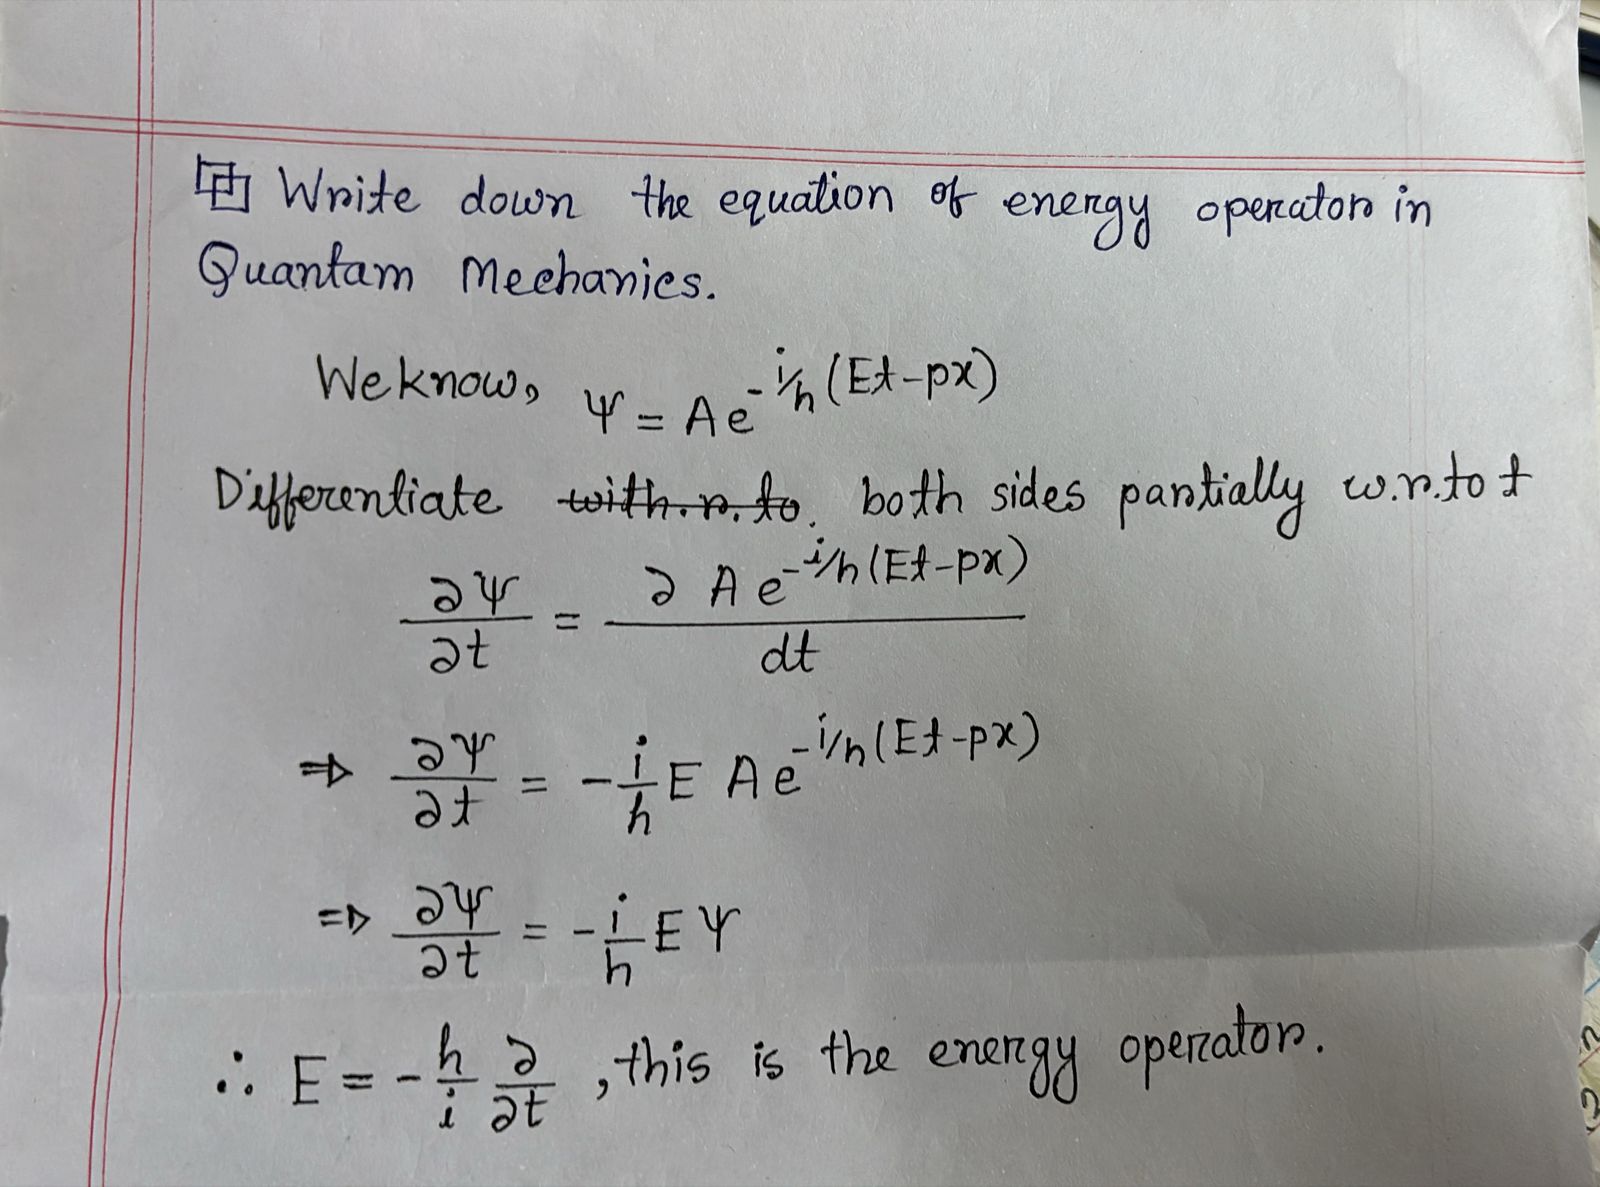 Write down the equation of energy operator in
Quantam Mechanics.
We know, Ψ = Ae^{-i/h (Et-px)}
Differentiate ~~with.r.to.~~ both sides partially w.r.to t
∂Ψ/∂t = ∂ Ae^{-i/h (Et-px)}/dt
⇒ ∂Ψ/∂t = -i/h E Ae^{-i/h (Et-px)}
⇒ ∂Ψ/∂t = -i/h E Ψ
∴ E = -h/i ∂/∂t , this is the energy operator.